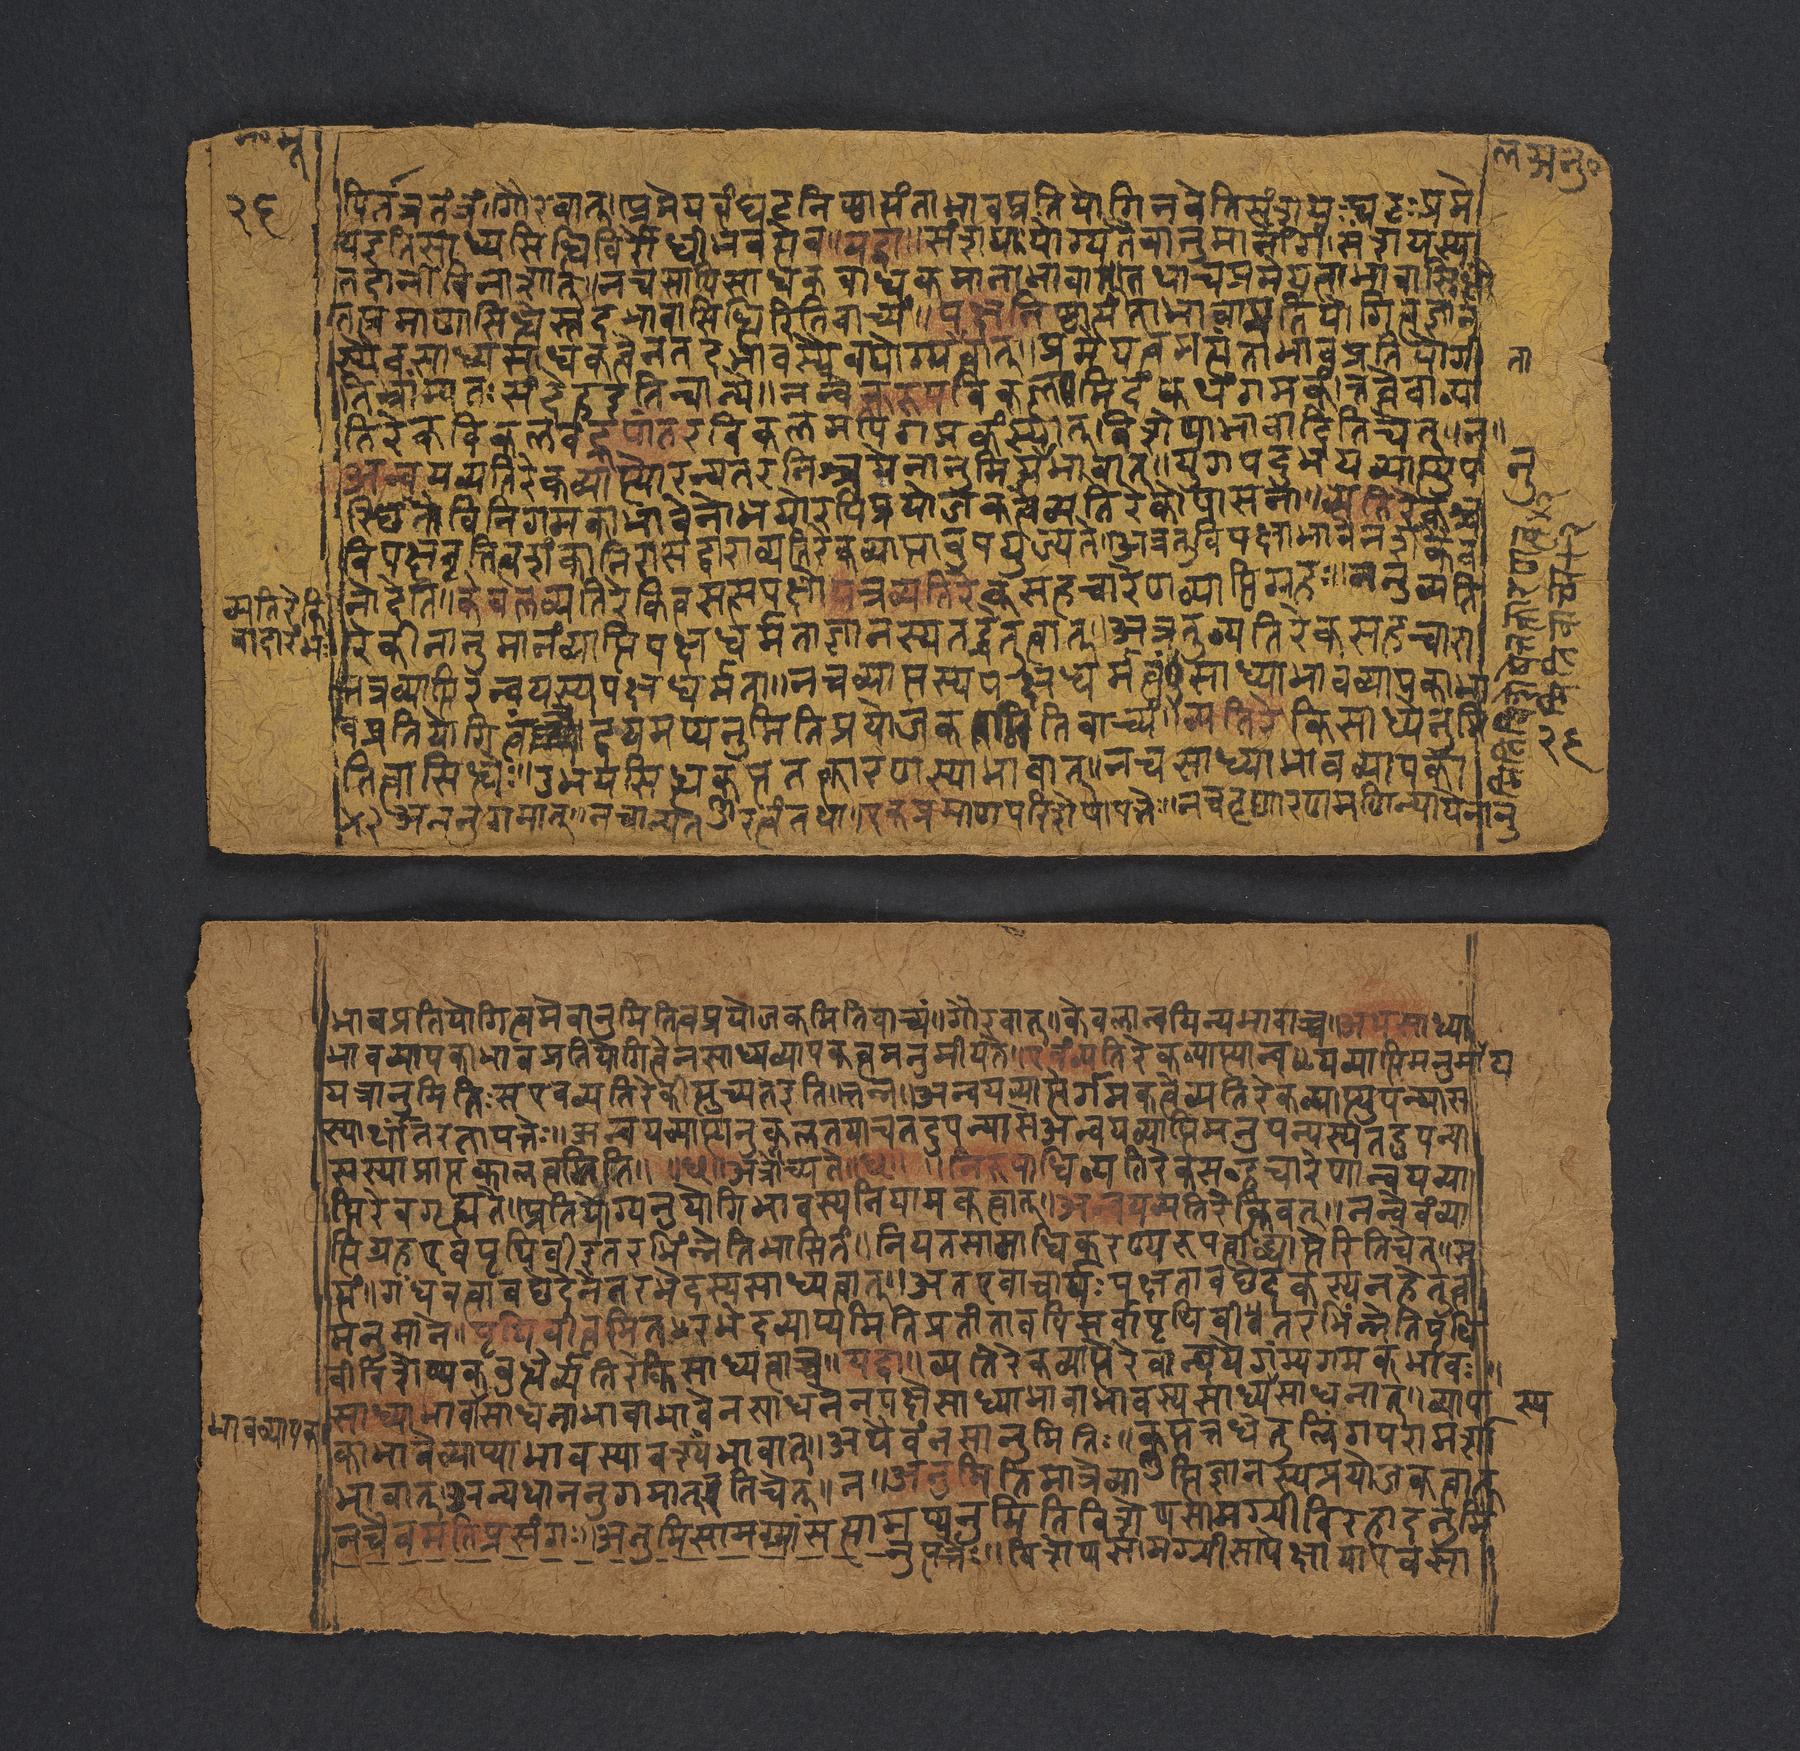 त० मू
ल अनु०
२६
पि तंत्र तंत्रं गौरवात्॥ प्रमेयत्वं घटनिष्ठात्यंताभावप्रतियोगि न वेति संशयश्च घटः प्रमे
य इति साध्यसिद्धिविरोधी भवत्येव॥ यद्वा॥ संशययोग्यतैवानुमानांगं संशयस्य
तदानीं विनाशात्॥ न च सापि साधकबाधकमानाभावात् तथा च प्रमेयत्वाभावासिद्धौ
तत्प्रमाणासिद्धेस्तदभावासिद्धिरिति वाच्यं॥ पक्षनिष्ठात्यंताभावाप्रतियोगित्वज्ञान
स्यैव साध्यसाधकत्वेन तदभावस्यैव योग्यत्वात्॥ प्रमेयत्वमत्यंताभावप्रतियोगी
ता
ति वाम्यतः संदेह इति चान्ये॥ नन्वेकरूपविकलमिदं कथं गमकं तत्त्वे वा व्य
तिरेकविकलवद्रूपांतरविकलमपि गमकं स्यात् विशेषाभावादिति चेत्॥ न॥
अन्वयव्यतिरेकव्याप्त्योरन्यतरनिश्चयेनानुमित्यनुभावात्॥ युगपदुभयव्याप्त्युप
नु
स्थितौ विनिगमकाभावेनोभयोरपि प्रयोजकत्वे व्यतिरेकोपासना॥ व्यतिरेकश्च
विपक्षवृत्तित्वशंकानिरासद्वारा व्यतिरेकव्याप्तावुपयुज्यते॥ अत्र तु विपक्षाभावेन शंकैव
नोदेति॥ केवलव्यतिरेकित्वसत्सपक्षो यत्र व्यतिरेकसहचारेण व्याप्तिग्रहः॥ ननु व्यति
व्यतिरेकि
वादारंभः
रेकी नानुमानं व्याप्तिपक्षधर्मताज्ञानस्य तद्धेतुत्वात्॥ अत्र तु व्यतिरेकसहचारा
त्तत्र व्याप्तिरन्वयस्य पक्षधर्मता॥ न च व्याप्तस्य पक्षधर्मत्वं साध्याभावव्यापकाभा
वप्रतियोगित्वं द्वयमप्यनुमितिप्रयोजकमिति वाच्यं॥ व्यतिरेकिसाध्येनुमि
२६
तित्वासिद्धेः॥ उभयसिद्धक्लृप्ततत्कारणस्याभावात्॥ न च साध्याभावव्यापका
अननुगमात्॥ न चान्यतरत्वं तथा॥ एकप्रमाणपरिशेषापत्तेः॥ न च तृणारणिमणिन्यायेनानु
भावप्रतियोगित्वमेवानुमितिप्रयोजकमिति वाच्यं॥ गौरवात्॥ केवलान्वयिन्यभावाच्च॥ अथ साध्या
भावव्यापकाभावप्रतियोगित्वेन साध्यव्यापकत्वमनुमीयते॥ एवं व्यतिरेकव्याप्त्यान्वयव्याप्तिमनुमाय
यत्रानुमितिः स एव व्यतिरेकीत्युच्यत इति॥ तन्न॥ अन्वयव्याप्तेर्गमकत्वे व्यतिरेकव्याप्त्युपन्यास
स्यार्थांतरतापत्तेः॥ अन्वयव्याप्त्यनुकूलतया च तदुपन्यासे अन्वयव्याप्तिमनुपन्यस्यैतदुपन्या
सस्याप्राप्तकालत्वमिति॥ ॥छ॥ अत्रोच्यते॥छ॥ ॥ निरुपाधिव्यतिरेकसहचारेणान्वयव्या
प्तिरेव गृह्यते॥ प्रतियोग्यनुयोगिभावस्य नियामकत्वात्॥ अन्वयव्यतिरेकिवत्॥ नन्वेवं व्या
प्तिग्रह एव पृथिवी इतरभिन्नेति भासितं॥ नियतसामानाधिकरण्यरूपत्वाद्व्याप्तेरिति चेत्॥ स
त्यं॥ गंधवत्त्वावच्छेदेनेतरभेदस्य साध्यत्वात्॥ अत एवाचार्यः पक्षतावच्छेदकस्य न हेतुत्व
मनुमाने॥ पृथिवीत्वमितरभेदव्याप्यमिति प्रतीतावपि सर्वा पृथिवी इतरभिन्नेति पृथि
वीविशेष्यकबुद्धेर्व्यतिरेकिसाध्यत्वाच्च॥ यद्वा॥ व्यतिरेकव्याप्तेरेवान्वये गम्यगमकभावः॥
साध्याभावे साधनाभावाभावेन साधनेन पक्षे साध्याभावाभावस्य साध्यस्य साधनात्॥ व्याप
स्य
भावव्यापक
काभावे व्याप्याभावस्यावश्यंभावात्॥ अथैवं न सानुमितिः॥ क्लृप्ततद्धेतुलिंगपरामर्शा
भावात्॥ अन्यथाननुगमात् इति चेत्॥ न॥ अनुमितिमात्रे व्याप्तिज्ञानस्य प्रयोजकत्वात्
न चैवमतिप्रसंगः॥ अनुमितिसामग्र्यां सत्यामप्यनुमितिविशेषसामग्री विरहादनुमि
नुपपत्तेः॥ विशेषसामग्रीसापेक्षाया एव सा